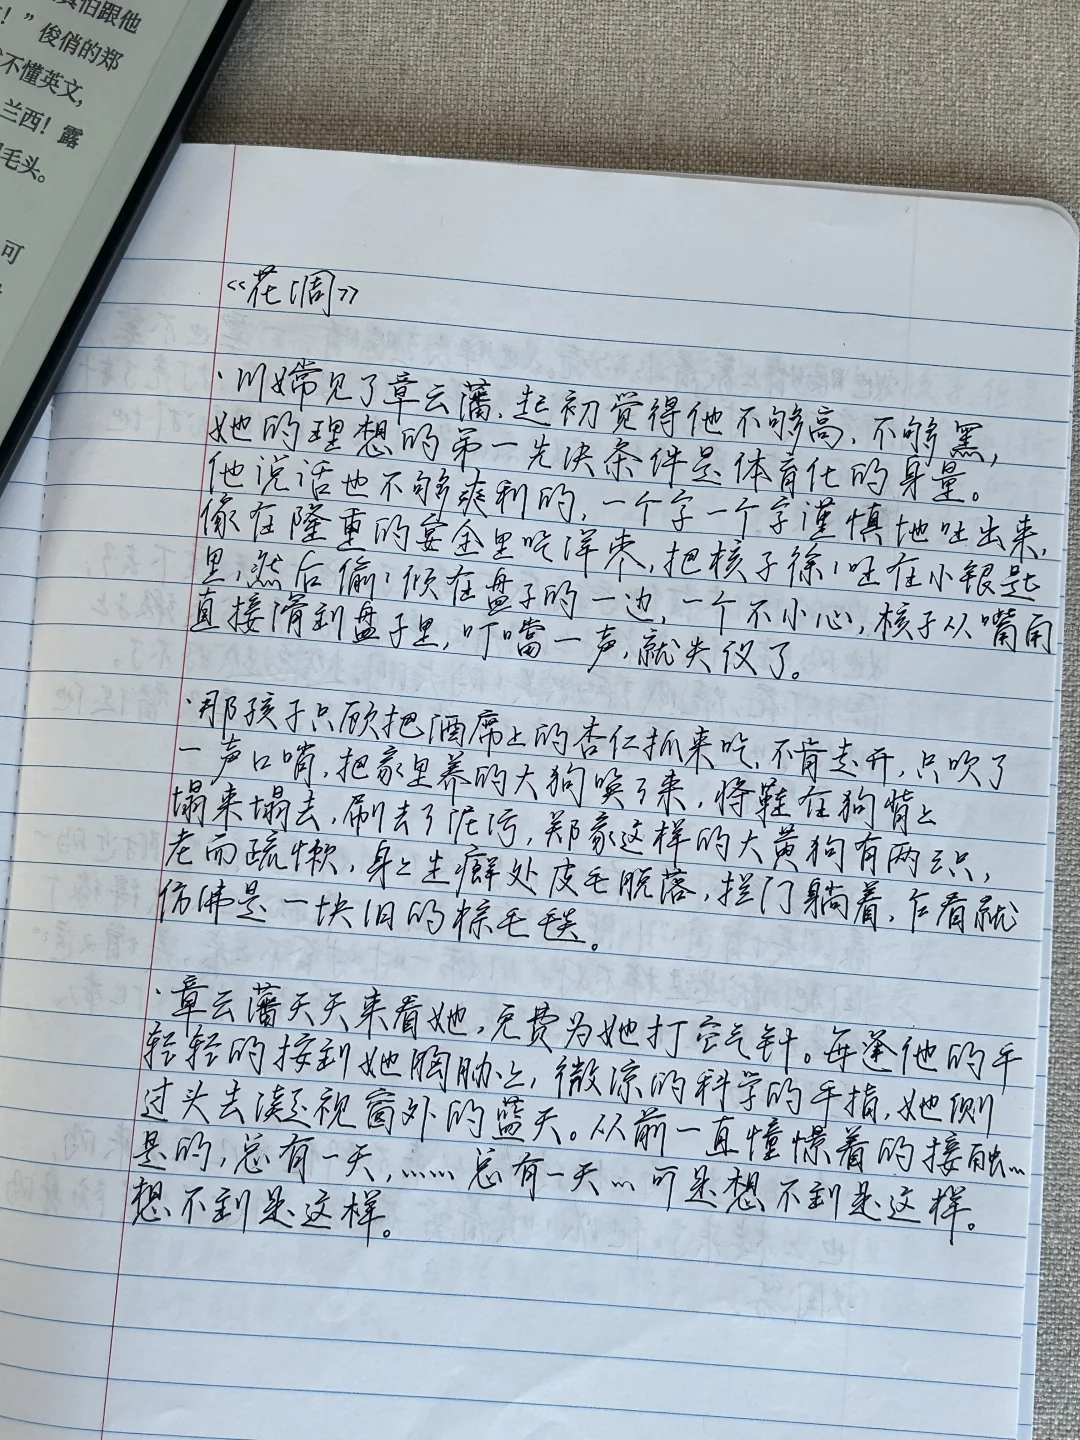 真怕跟他
！”俊俏的郑
不懂英文，
兰西！露
毛头。
可
《花凋》
·川嫦见了章云藩，起初觉得他不够高，不够黑，
她的理想的第一先决条件是体育化的身量。
他说话也不够爽利的，一个字一个字谨慎地吐出来，
像在隆重的宴会里吃洋枣，把核子徐徐吐在小银匙
里，然后偷偷倾在盘子的一边，一个不小心，核子从嘴角
直接滑到盘子里，叮当一声，就失仪了。
·那孩子只顾把酒席上的杏仁抓来吃，不肯走开，只吹了
一声口哨，把家里养的大狗唤了来，将鞋在狗背上
塌来塌去，刷去了泥污，郑家这样的大黄狗有两三只，
老而疏懒，身上生癣处皮毛脱落，拦门躺着，乍看就
仿佛是一块旧的棕毛毯。
·章云藩天天来看她，免费为她打空气针。每逢他的手
轻轻的按到她胸肋上，微凉的科学的手指，她侧
过头去凝视窗外的蓝天。从前一直憧憬着的接触……
是的，总有一天，……总有一天…可是想不到是这样。
想不到是这样。